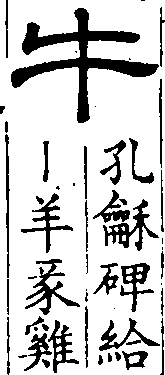 牛
孔龢碑給
丨羊豕雞